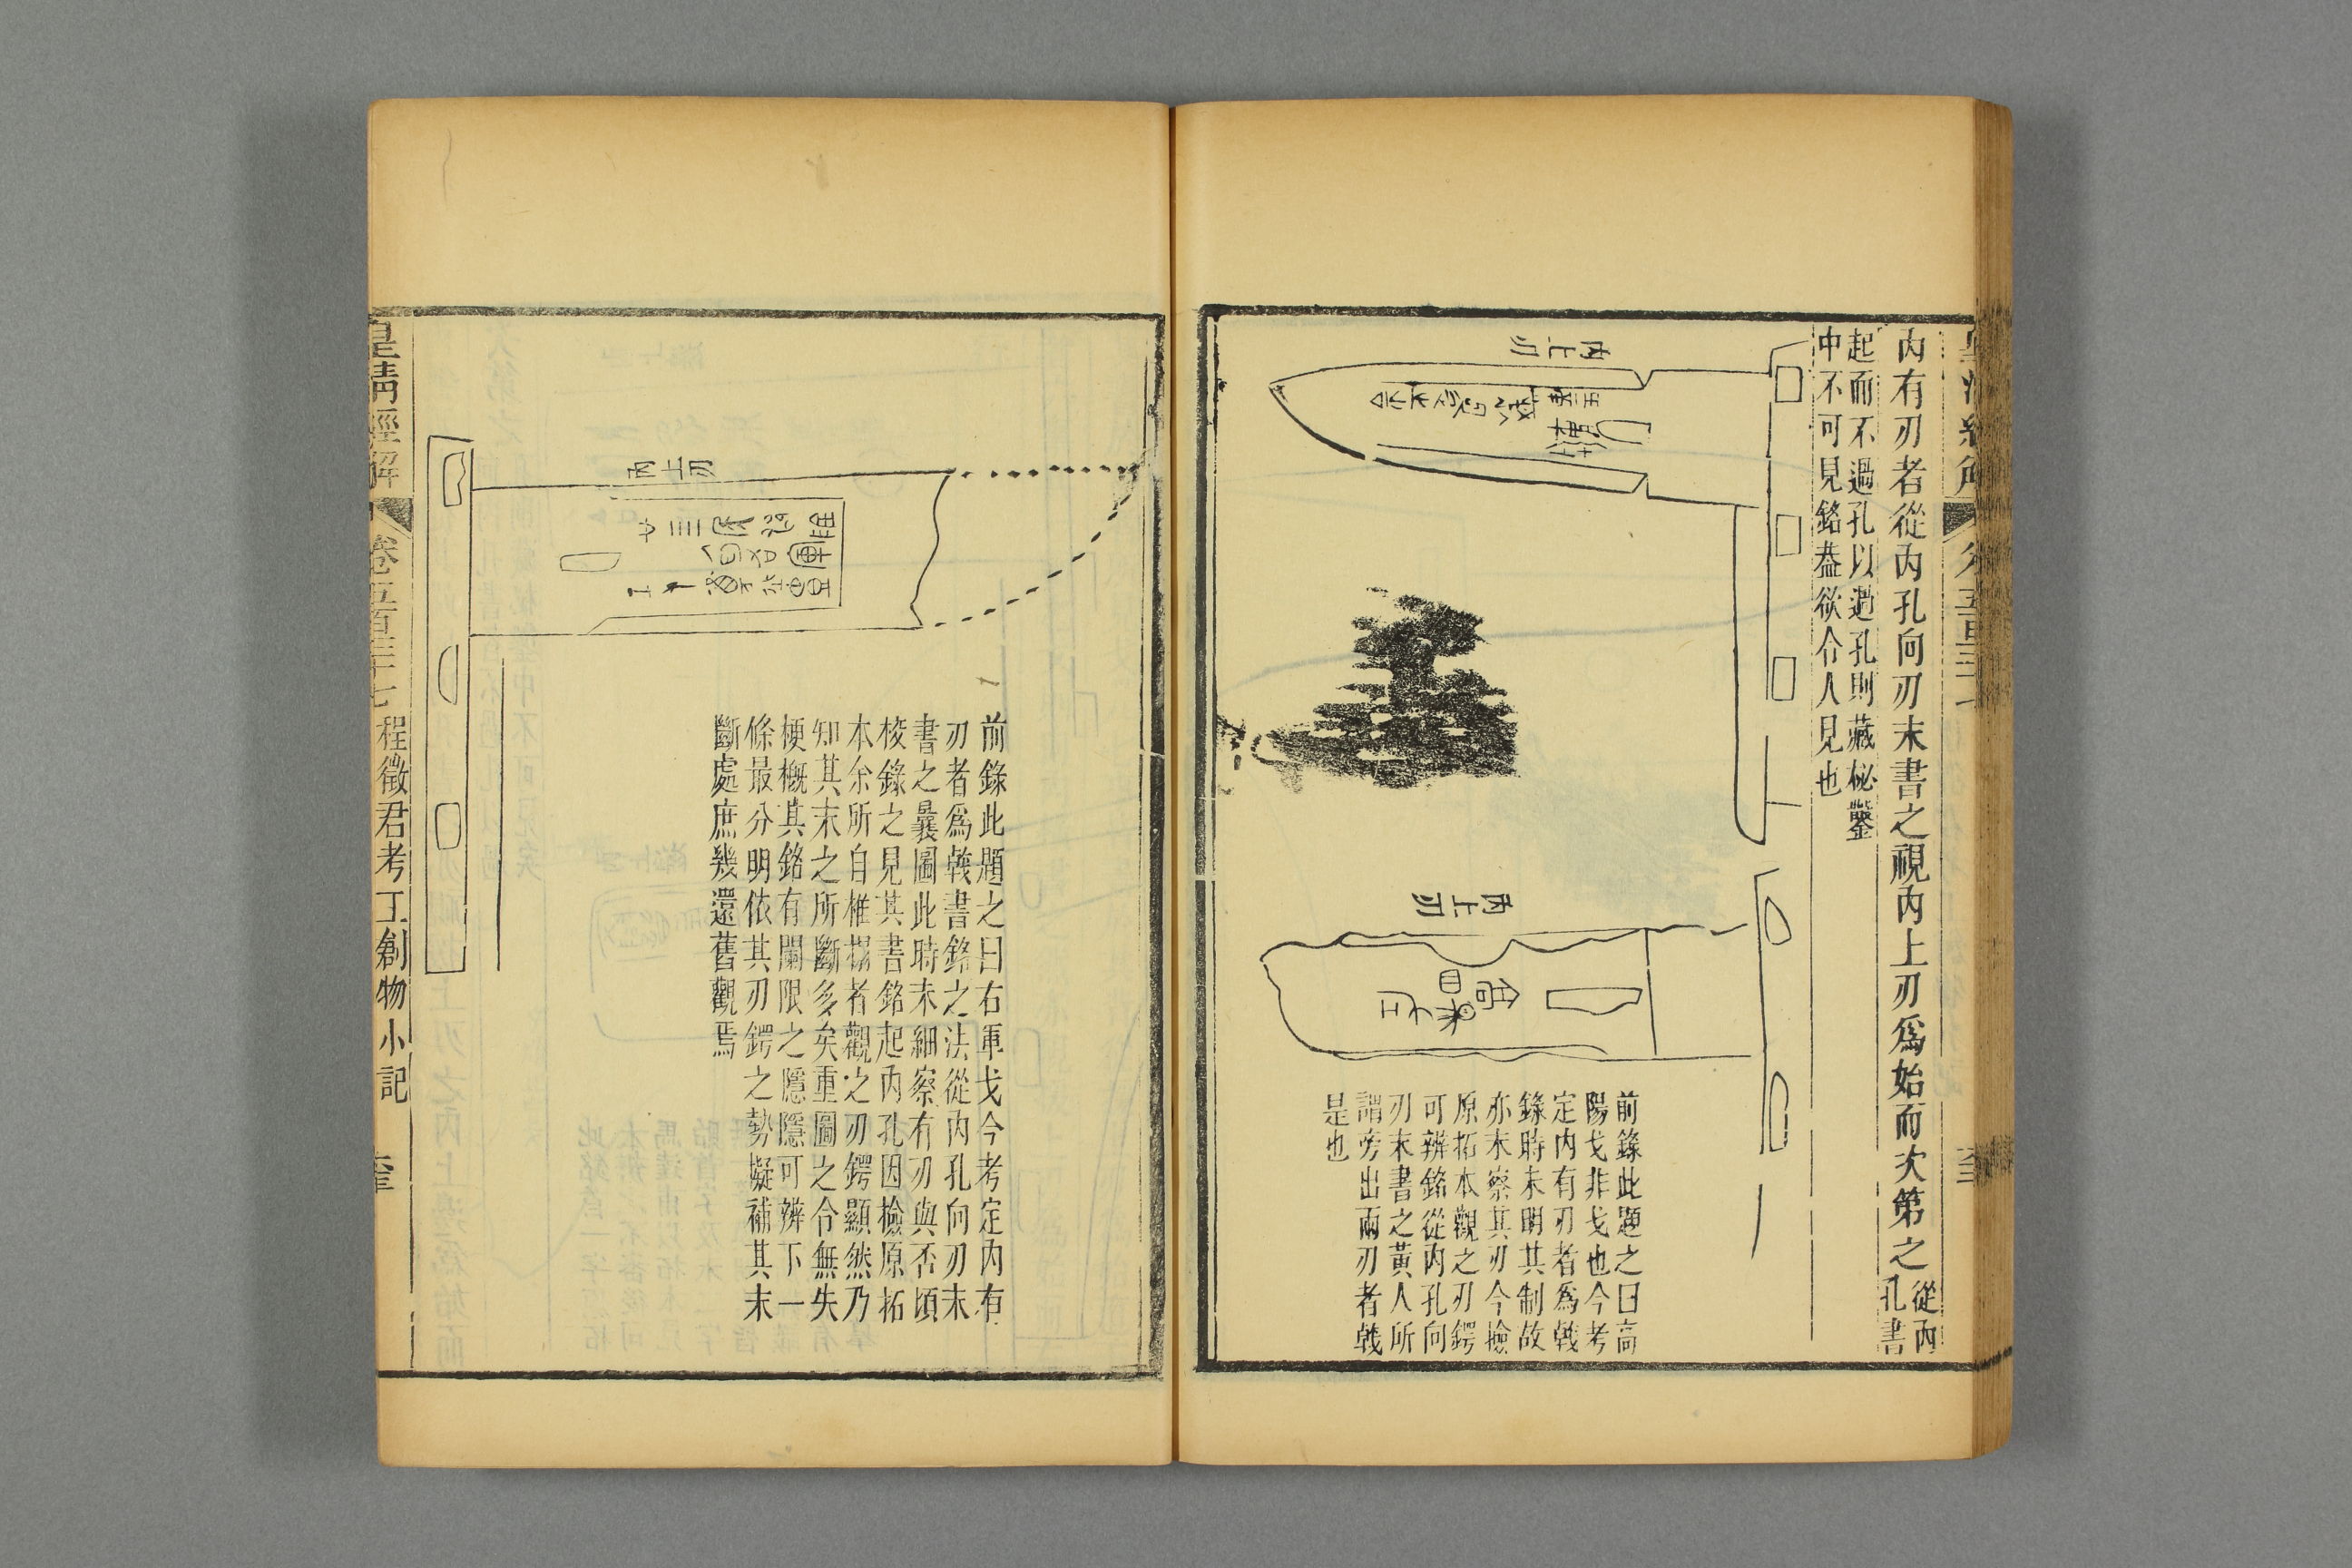 內有刃者從內孔向刃末書之視內上刃爲始而次第之從內
孔書
起而不過孔以過孔則藏柲鑿
中不可見銘葢欲令人見也
內上刃
內上刃
前錄此題之曰高
陽戈非戈也今考
定內有刃者爲戟
錄時未明其制故
亦未察其刃今撿
原拓本觀之刃鍔
可辨銘從內孔向
刃末書之黃人所
謂旁出兩刃者戟
是也
內上刃
前錄此題之曰右軍戈今考定內有
刃者爲戟書銘之法從內孔向刃末
書之曩圖此時未細察有刃與否頃
棱錄之見其書銘起內孔因檢原拓
本余所自椎搨者觀之刃鍔顯然乃
知其末之所斷多矣重圖之令無失
梗概其銘有闌限之隱隱可辨下一
條最分明依其刃鍔之勢擬補其末
斷處庶幾還舊觀焉
皇淸經解
卷五百三十七
程徵君考工創物小記